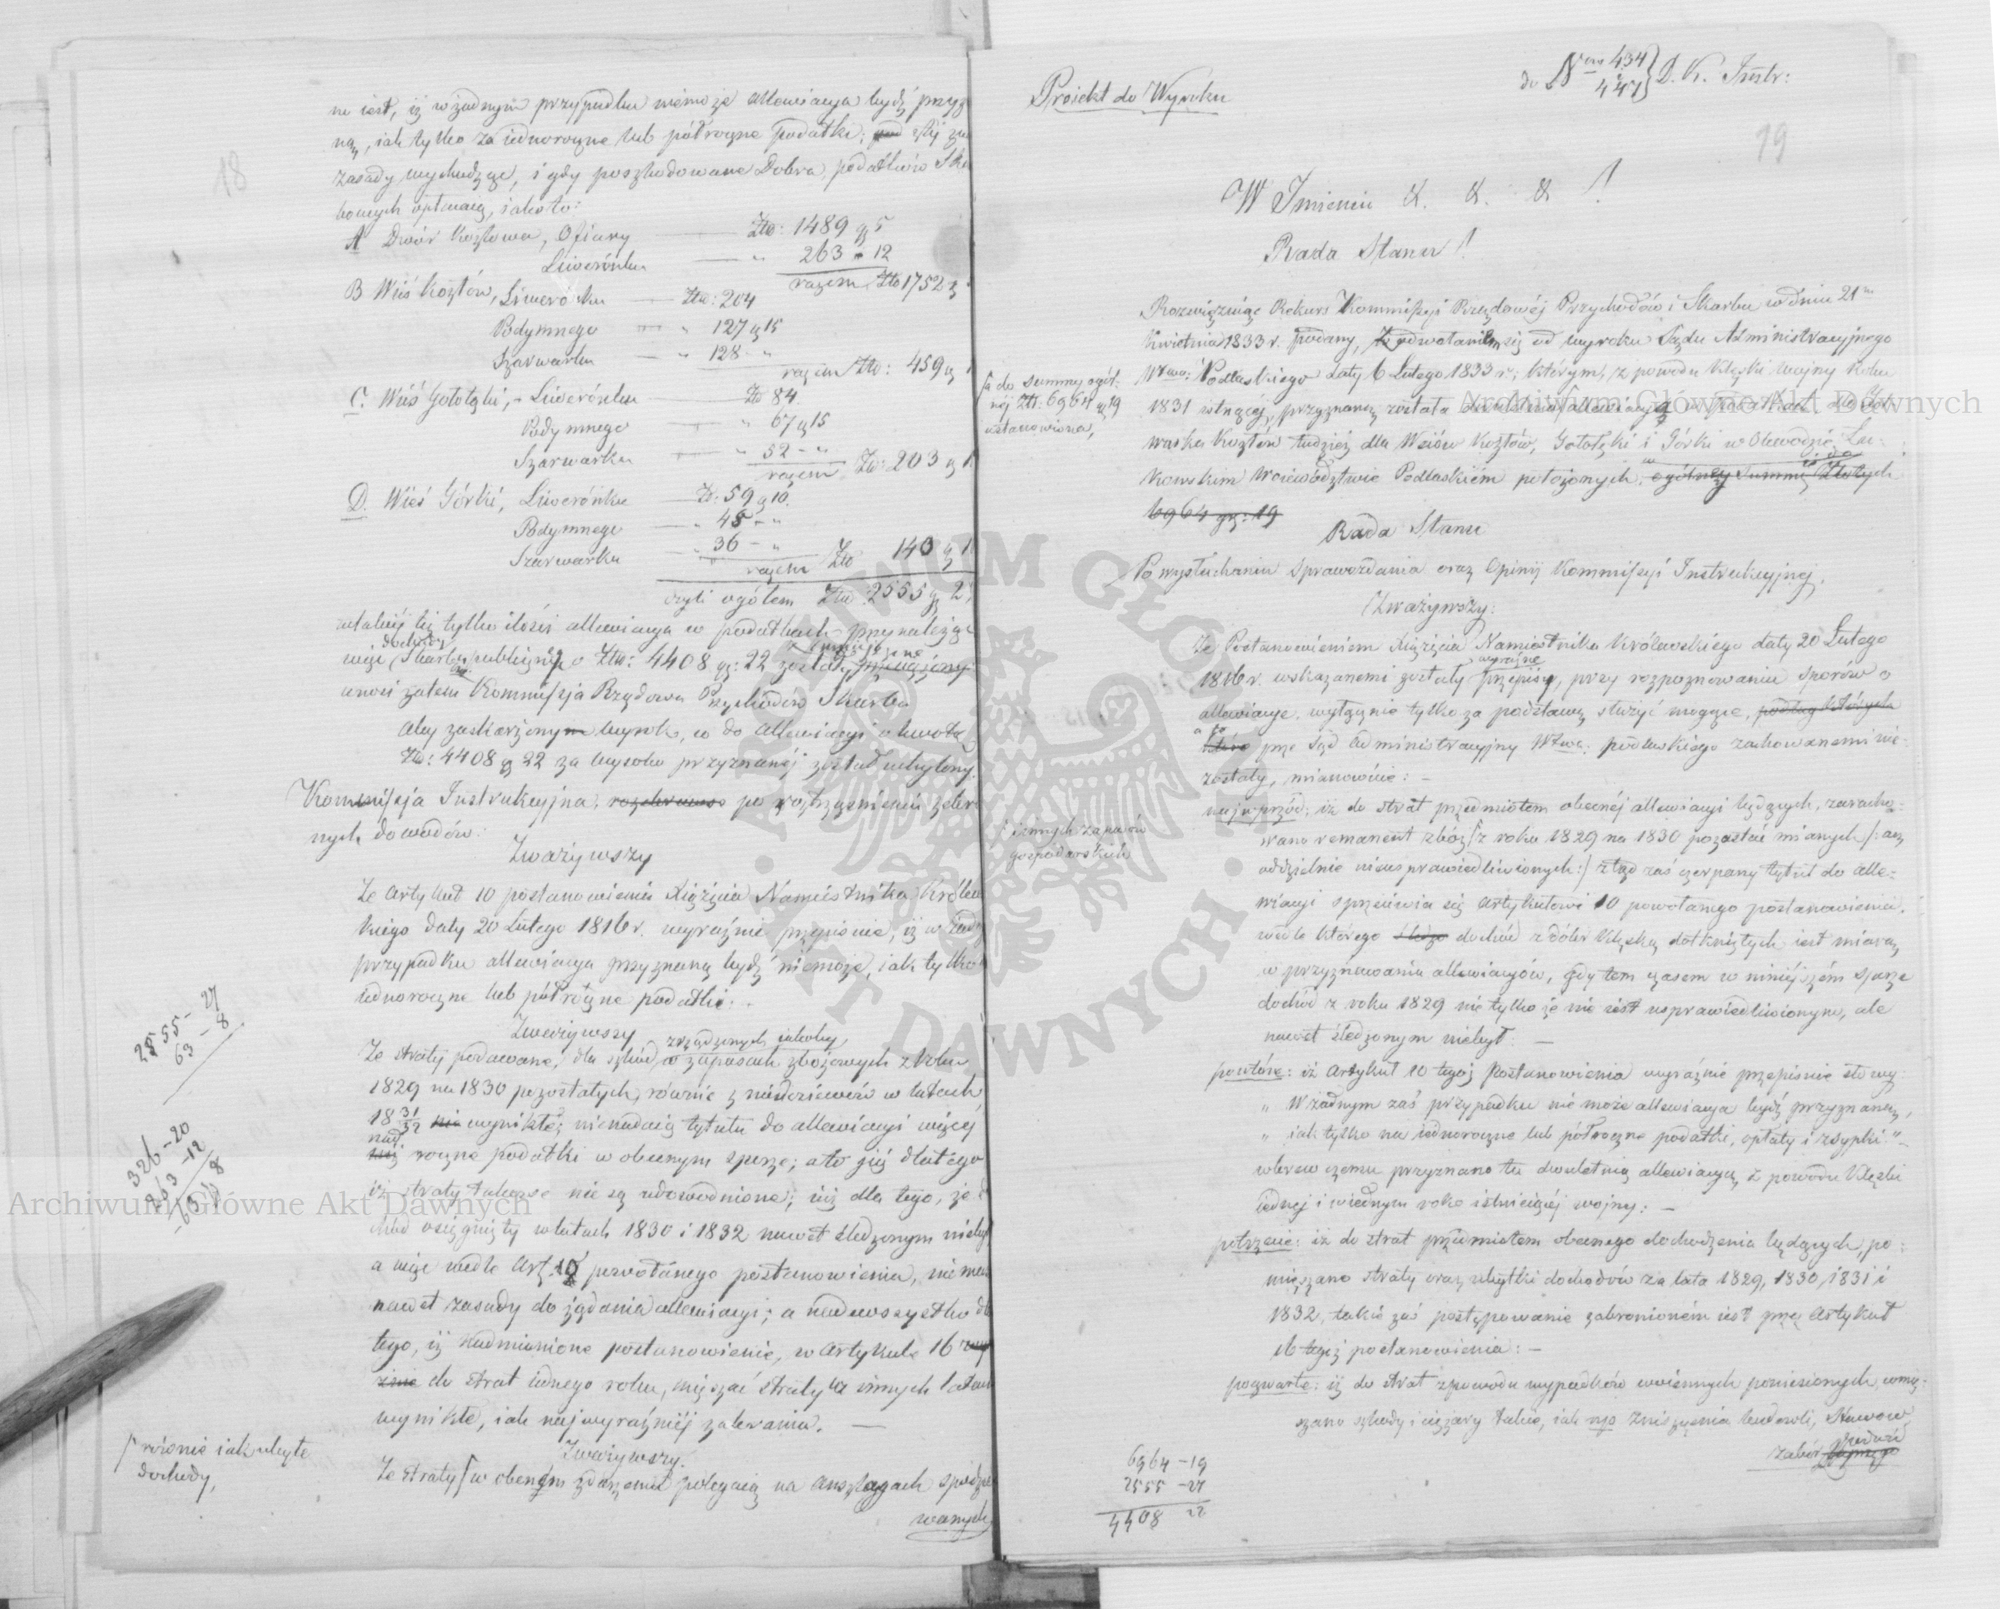 18
ne iest, iż w żadnym przypadku niemoże allewiacya bydź przyz
ną, iak tylko za iednoroczne lub półroczne podatki; z tej zaś
zasady wychodząc, i gdy poszkodowane Dobra, podatków Skar
bowych opłacaią, iako to:
A Dwór Kozłowa, Ofiary Złp: 1489 g 5
Liwerunku " 263 " 12
razem Złp 1752 g
B Wieś Kozłów, Liwerunku Złp: 204
Podymnego " 127 g 15
Szarwarku " 128 - "
razem Złp: 459 g 1
C. Wieś Gołołąki, - Liwerunku Zł 84.
Podymnego " 67 g 15
Szarwarku " 52 - "
razem Złp: 203 g 1
D. Wieś Górki, Liwerunku Zł: 59 g 10.
Podymnego " 45 - "
Szarwarku " 36 - "
razem Złp 140 g 1
czyli ogółem Złp: 2555 g 2
allewiacya w podatkach przynależąc
więc Skarbu publicznego o Złp: 4408 gr: 22 został
wnosi zatem Kommissja Rządowa Przychodów i Skarbu
aby zaskarżony wyrok, co do allewiacyi w kwocie
Złp: 4408 g 22 za wysoko przyznanej został uchylony.
Kommissja Instrukcyjna, po roztrząśnieniu zebra
nych dowodów:
Zważywszy
Że Artykuł 10 postanowienia Xiążęcia Namiestnika Królew
skiego daty 20 Lutego 1816 r. wyraźnie przepisuie, iż w żadn
przypadku allewiacya przyznaną bydź niemoże, iak tylko
iednoroczne lub półroczne podatki. -
Zważywszy
Że straty podawane, dla szkód zrządzonych iakoby w zapasach zbożowych z roku
1829 na 1830 pozostałych, równie z nieurodzaiów w latach
18 31/32 wynikłe; nienadaią tytułu do allewiacyi więcej
nad roczne podatki w obecnym sporze; a to iuż dlatego
iż straty takowe nie są udowodnione; iuż dla tego, że
chód osiągnięty w latach 1830 i 1832 nawet śledzonym niebył
a więc wedle Art. 10 powołanego postanowienia, nie ma
nawet zasady do żądania allewiacyi; a nadewszystko dla
tego, iż nadmienione postanowienie, w Artykule 16
do strat iednego roku, mięszać straty w innych latach
wynikłe, iak naywyraźniej zabrania. —
Zważywszy.
Że straty w obecnym zdarzeniu polegaią na anszlagach spodzie
wanych
równie iak ubyłe
dochody,
2555 - 27
63 - 8
326 - 20
263 - 12
63 - 8
do Nrów 434 i 447 } D. K. Instr:
19
Proiekt do Wyroku
W Imieniu &. &. &!
Rada Stanu!
Rozwiązuiąc Rekurs Kommissyi Rządowej Przychodów i Skarbu w dniu 21m
Kwietnia 1833 r. podany, z odwołaniem się od wyroku Sądu Administracyjnego
Wtwa: Podlaskiego daty 6 Lutego 1833 r; którym, z powodu klęski woyny roku
1831 przyznaną została
waska Kozłów tudzież dla Wsiów Kozłów, Gołołąki i Górki w Obwodzie Łu-
kowskim Woiewództwie Podlaskiem położonych, ogólney Summie Złotych
6964 gr: 19
do summy ogól-
nej Złt: 6964 g 19
ustanowiona,
Rada Stanu
Po wysłuchaniu sprawozdania oraz Opinij Kommissyi Instrukcyjnej,
Zważywszy:
Że Postanowieniem Xiążęcia Namiestnika Królewskiego daty 20 Lutego
1816 r. wskazanemi zostały wyraźne przepisy, przy rozpoznawaniu sporów o
allewiacye. wyłącznie tylko za podstawę służyć mogące, podług których
które prze Sąd Administracyjny Wtwa: podlaskiego zachowanemi nie-
zostały, mianowicie: -
nayprzód; iż do strat przedmiotem obecnéj allewiacyi będących, zaracho-
wano remanent zbóż z roku 1829 na 1830 pozostać mianych /: acz
oddzielnie nieusprawiedliwionych :/ ztąd zaś czerpany tytuł do alle-
wiacyi sprzeciwia się Artykułowi 10 powołanego postanowienia,
wedle którego dochód z dóbr klęską dotkniętych iest miarą
w przyznawaniu allewiacyów, gdy tem czasem w niniéjszém sporze
dochód z roku 1829 nie tylko że nie iest usprawiedliwionym, ale
nawet śledzonym niebył: —
i innych zapasów
gospodarskich
powtóre: iż Artykuł 10 tegoż Postanowienia wyraźnie przepisuie słowy:
„ W żadnym zaś przypadku nie może allewiacya bydź przyznaną,
„ iak tylko na iednoroczne lub półroczne podatki, opłaty i zsypki." -
wbrew czemu przyznano tu dwuletnią allewiacyą, z powodu klęski
iednej i w iednym roku istnieiącéj woyny: —
potrzecie: iż do strat przedmiotem obecnego dochodzenia będących, po-
mięszano straty oraz ubytki dochodów za lata 1829, 1830, 1831 i
1832, takie zaś postępowanie zabronioném iest przez Artykuł
16 tegoż postanowienia: —
poczwarte: iż do strat z powodu wypadków woiennych poniesionych, wmię-
szano szkody i ciężary takie, iak np: zniszczenia budowli, Stawow,
zabór
6964 - 19
2555 - 27
4408 22